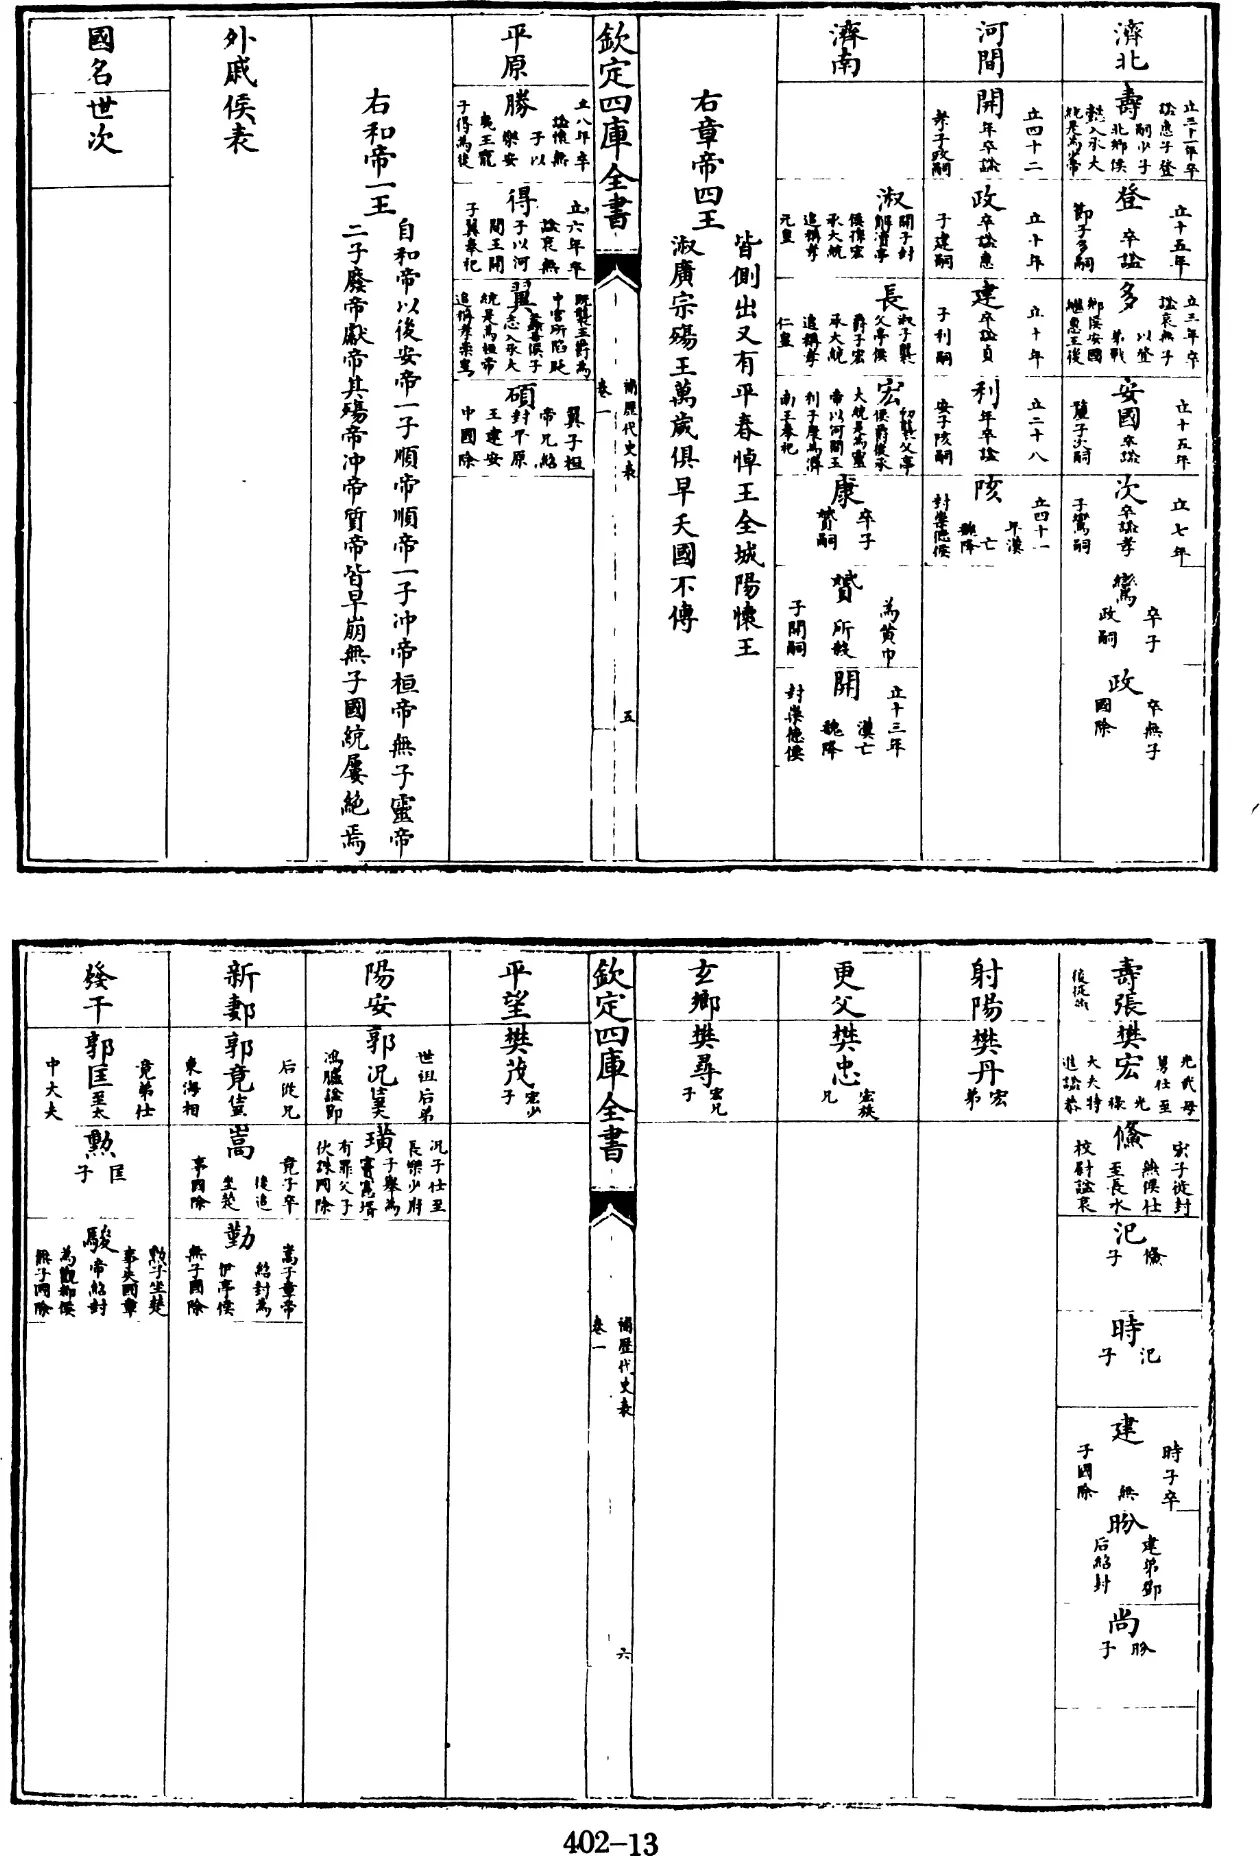 濟北
壽
立三十一年卒
諡惠子登
嗣少子
北鄉侯
懿入承大
統是為少帝
登
立十五年
卒諡
節子多嗣
多
立三年卒
諡哀無子
以登
弟戰
鄉侯安國
繼惠王後
安國
立十五年
卒諡
釐子次嗣
次
立七年
卒諡孝
子鸞嗣
鸞
卒子
政嗣
政
卒無子
國除
河間
開
立四十二
年卒諡
孝子政嗣
政
立十年
卒諡惠
子建嗣
建
立十年
卒諡貞
子利嗣
利
立二十八
年卒諡
安子陔嗣
陔
立四十一
年漢
亡
魏降
封崇德侯
濟南
淑
開子封
解瀆亭
侯孫宏
承大統
追稱孝
元皇
長
淑子襲
父亭侯
爵子宏
承大統
追稱孝
仁皇
宏
初襲父亭
侯爵後承
大統是為靈
帝以河間王
利子康為濟
南王奉祀
康
卒子
贇嗣
贇
為黃巾
所殺
子開嗣
開
立十三年
漢亡
魏降
封崇德侯
右章帝四王
皆側出又有平春悼王全城陽懷王
淑廣宗殤王萬歲俱早夭國不傳
欽定四庫全書
補歷代史表
卷一
五
平原
勝
立八年卒
諡懷無
子以
樂安
夷王寵
子得為後
得
立六年卒
諡哀無
子以河
間王開
子翼奉祀
翼
既襲王爵為
中官所陷貶
蠡吾侯子
志入承大
統是為桓帝
追稱孝崇皇
碩
翼子桓
帝兄紹
封平原
王建安
中國除
右和帝一王
自和帝以後安帝一子順帝順帝一子沖帝桓帝無子靈帝
二子廢帝獻帝其殤帝沖帝質帝皆早崩無子國統屢絶焉
外戚侯表
國名世次
壽張
後從㑹
樊宏
光武母
舅仕至
光
祿
大夫特
進諡恭
鯈
宏子徙封
燕侯仕
至長水
校尉諡哀
汜
鯈
子
時
汜
子
建
時子卒
無
子國除
盼
建弟鄧
后紹封
尚
盼
子
射陽
樊丹
宏
弟
更父
樊忠
宏族
兄
玄鄉
樊尋
宏兄
子
欽定四庫全書
補歷代史表
卷一
六
平望
樊茂
宏少
子
陽安
郭況
世祖后弟
仕至大
鴻臚諡節
璜
況子仕至
長樂少府
子舉為
竇憲壻
有罪父子
伏誅國除
新郪
郭竟
后從兄
仕至
東海相
嵩
竟子卒
後追
坐楚
事國除
勤
嵩子章帝
紹封為
伊亭侯
無子國除
發干
郭匡
竟弟仕
至太
中大夫
勲
匡
子
駿
勲子坐楚
事失國章
帝紹封
為觀都侯
無子國除
402-13